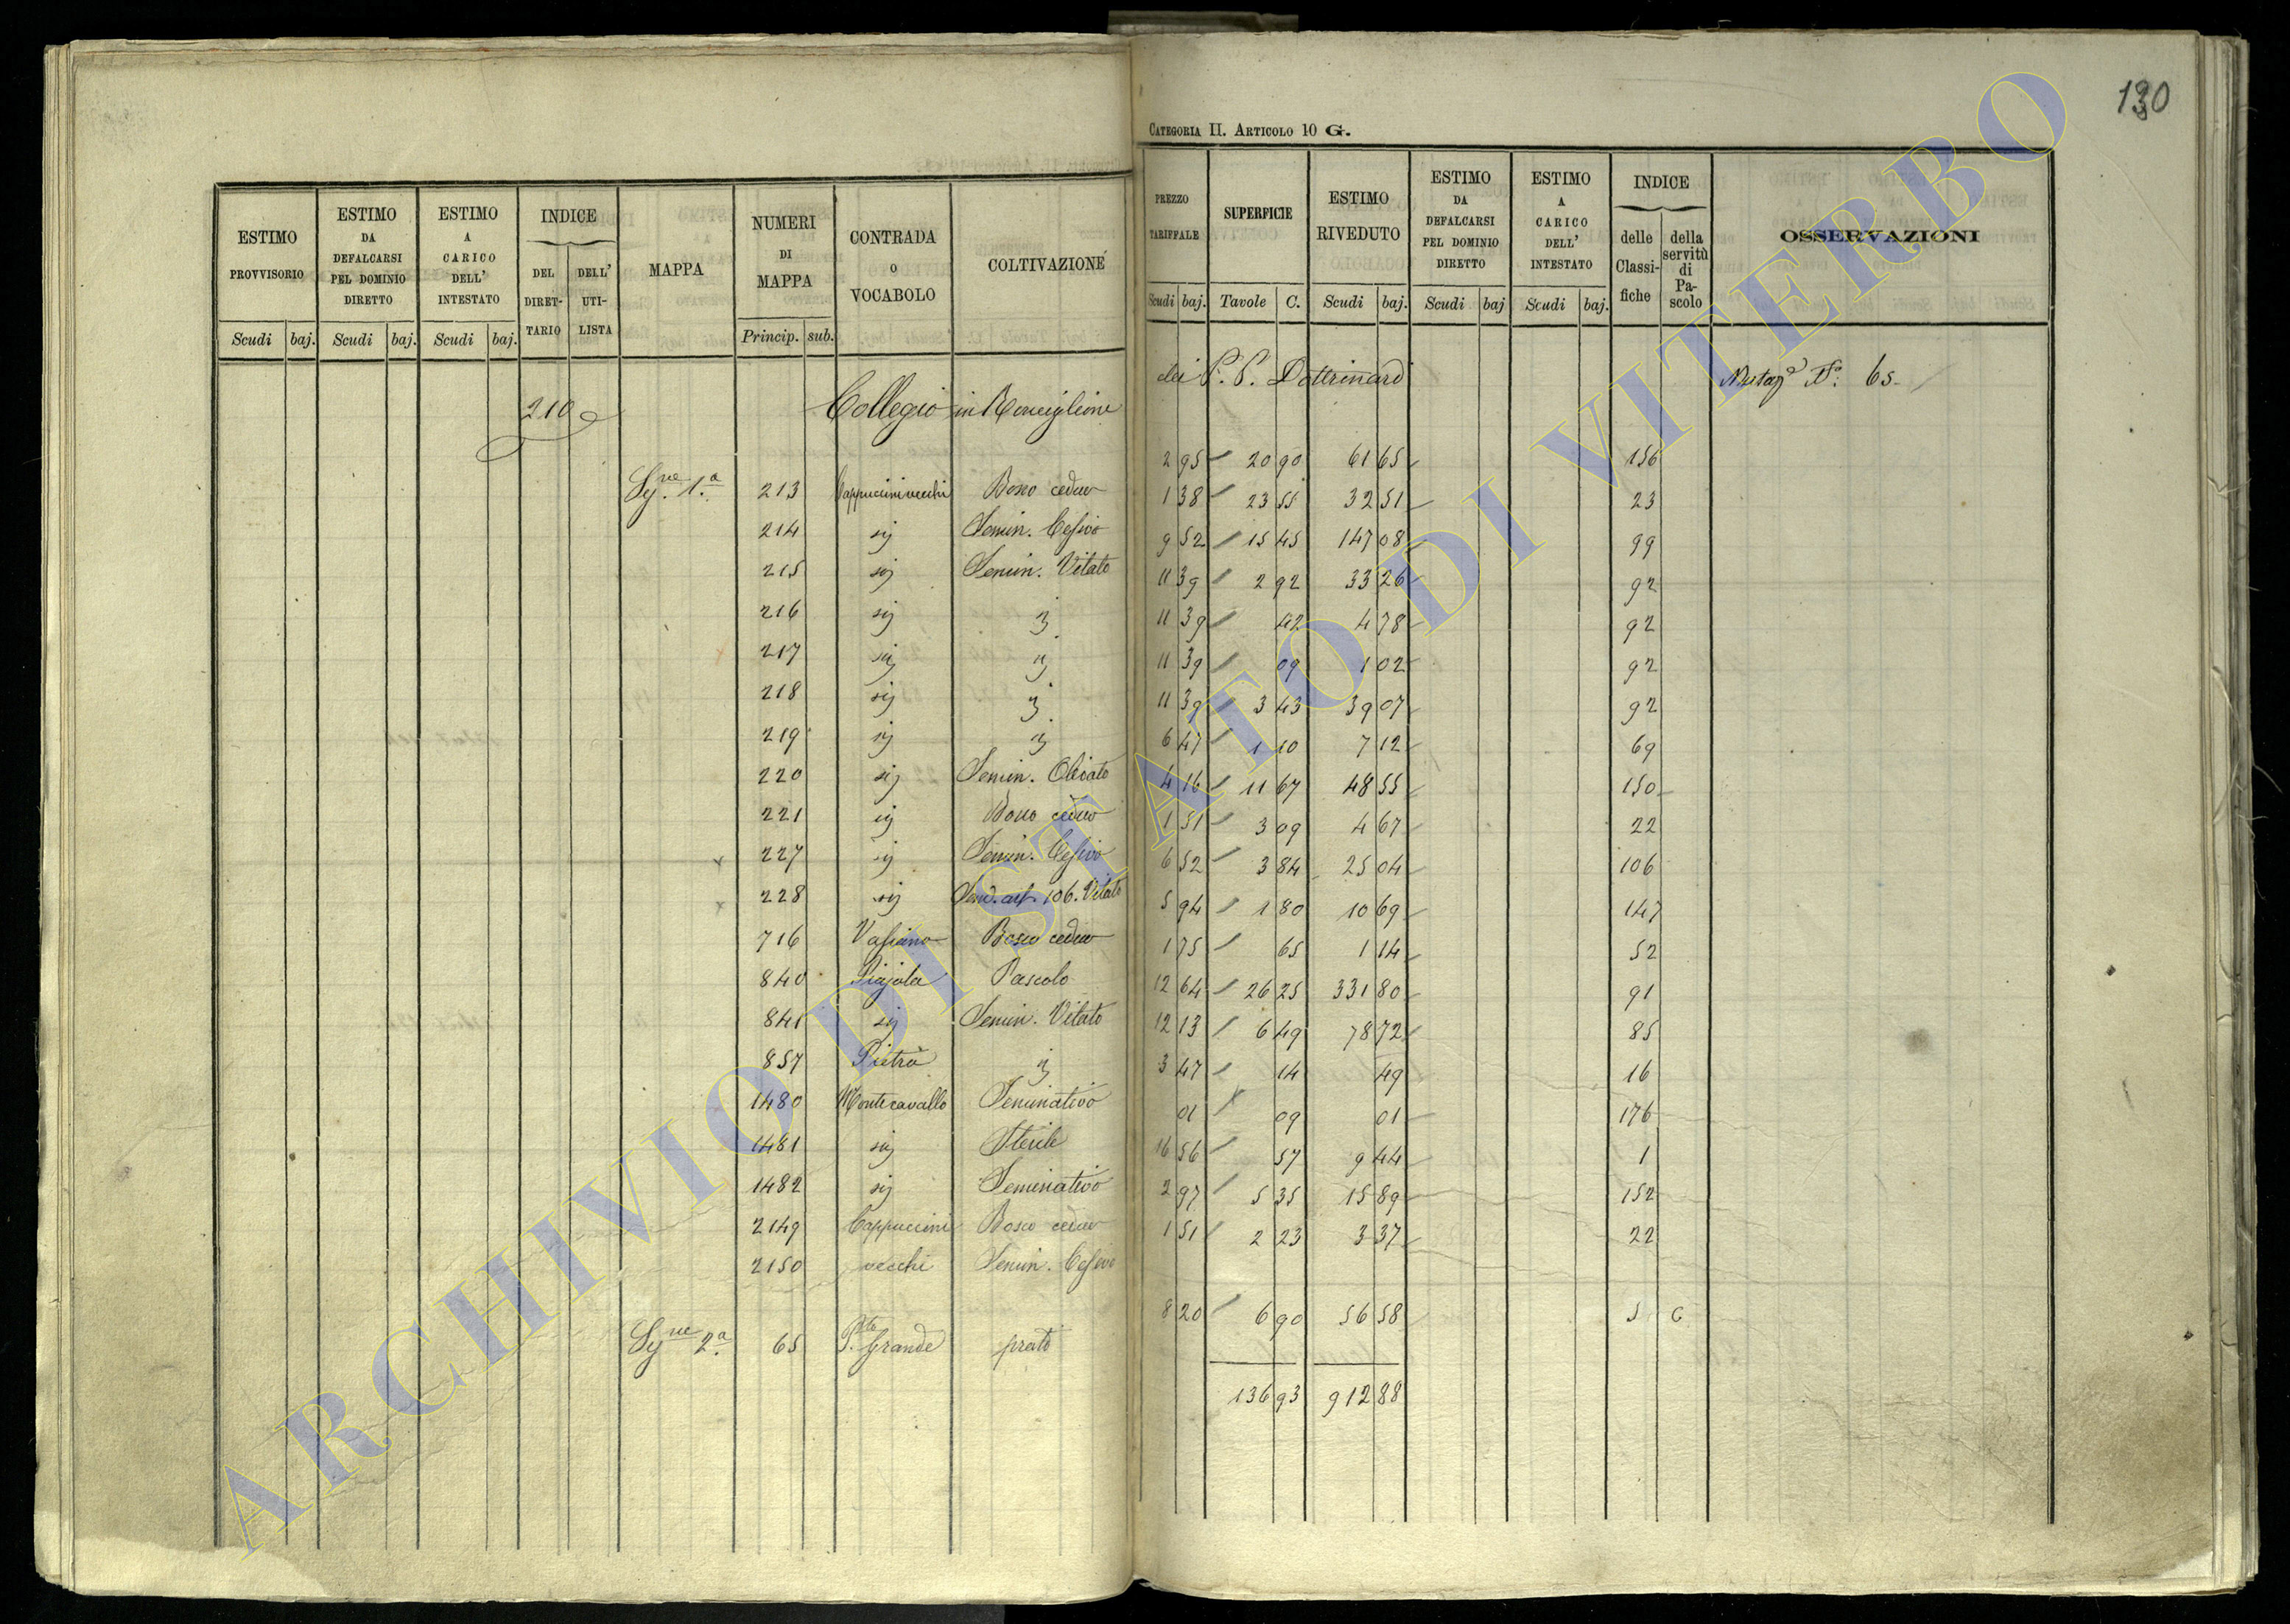 130
CATEGORIA II. ARTICOLO 10 G.
ESTIMO PROVVISORIO
ESTIMO DA DEFALCARSI PEL DOMINIO DIRETTO
ESTIMO A CARICO DELL' INTESTATO
INDICE
DEL DIRET-TARIO
DELL' UTI-LISTA
MAPPA
NUMERI DI MAPPA
CONTRADA O VOCABOLO
COLTIVAZIONE
Scudi baj. Scudi baj. Scudi baj. Princip. sub.
PREZZO TARIFFALE
SUPERFICIE
ESTIMO RIVEDUTO
ESTIMO DA DEFALCARSI PEL DOMINIO DIRETTO
ESTIMO A CARICO DELL' INTESTATO
INDICE
delle Classi-fiche
della servitù di Pa-scolo
OSSERVAZIONI
Scudi baj. Tavole C. Scudi baj. Scudi baj Scudi baj.
210 Collegio in Ronciglione dei P. P. Dottrinari N.o 65
1.a 213 Cappuccini vecchi Bosco ceduo 2 95 20 90 61 65 156
214 sij Semin. Cesivo 1 38 23 55 32 51 23
215 sij Semin. Vitato 9 52 15 45 147 08 99
216 sij ij 11 39 2 92 33 26 92
217 sij ij 11 39 42 4 78 92
218 sij ij 11 39 09 1 02 92
219 sij ij 11 39 3 43 39 07 92
220 sij Semin. Olivato 6 47 1 10 7 12 69
221 sij Bosco ceduo 4 16 11 67 48 55 150
227 sij Semin. Cesivo 1 51 3 09 4 67 22
228 sij 106. Vitato 6 52 3 84 25 04 106
716 Vasiano Bosco ceduo 5 94 1 80 10 69 147
840 Piajola Pascolo 1 75 65 1 14 52
841 sij Semin. Vitato 12 64 26 25 331 80 91
857 Pietra ij 12 13 6 49 78 72 85
1480 Montecavallo Seminativo 3 47 14 49 16
1481 sij Sterile 01 09 01 176
1482 sij Seminativo 16 56 57 9 44 1
2149 Cappuccini Bosco ceduo 2 97 5 35 15 89 152
2150 vecchi Semin. Cesivo 1 51 2 23 3 37 22
2a 65 P.to Grande prato 8 20 6 90 56 58 5 C
136 93 912 88
ARCHIVIO DI STATO DI VITERBO